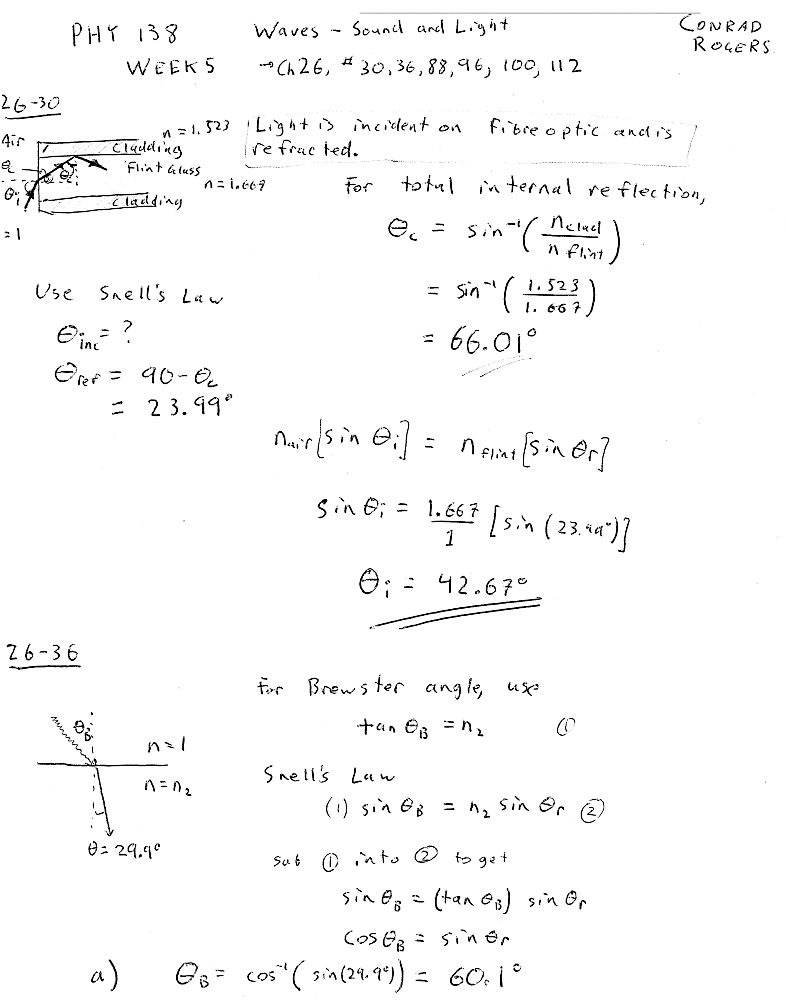 PHY 138 Waves - Sound and Light CONRAD ROGERS
WEEK 5 → Ch 26, # 30, 36, 88, 96, 100, 112
26-30
Air n = 1.523
Cladding
Flint Glass
n = 1.667
Cladding
θi
θc
= 1
Light is incident on fibre optic and is
refracted.
For total internal reflection,
θc = sin⁻¹(nclad / nflint)
= sin⁻¹(1.523 / 1.667)
= 66.01°
Use Snell's Law
θinc = ?
θref = 90 - θc
= 23.99°
nair[sin θi] = nflint[sin θr]
sin θi = 1.667/1 [sin (23.99°)]
θi = 42.67°
26-36
For Brewster angle, use
tan θB = n2 ①
θB
n = 1
n = n2
θ = 29.9°
Snell's Law
(1) sin θB = n2 sin θr ②
sub ① into ② to get
sin θB = (tan θB) sin θr
cos θB = sin θr
a) θB = cos⁻¹(sin(29.9°)) = 60.1°